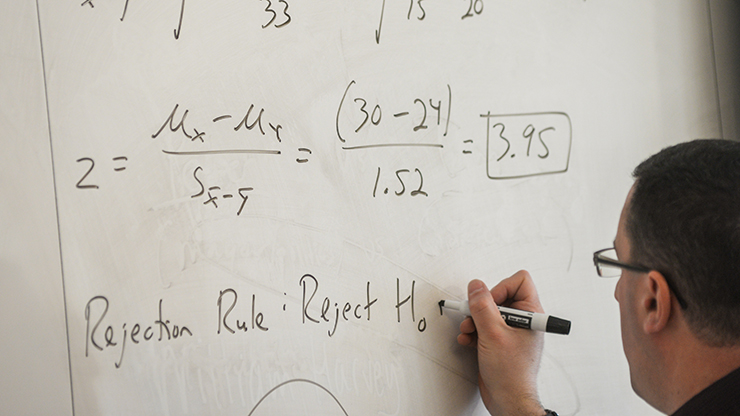 33 15 20
z = μx − μY / Sx̄−ȳ = (30 − 24) / 1.52 = 3.95
Rejection Rule : Reject H₀